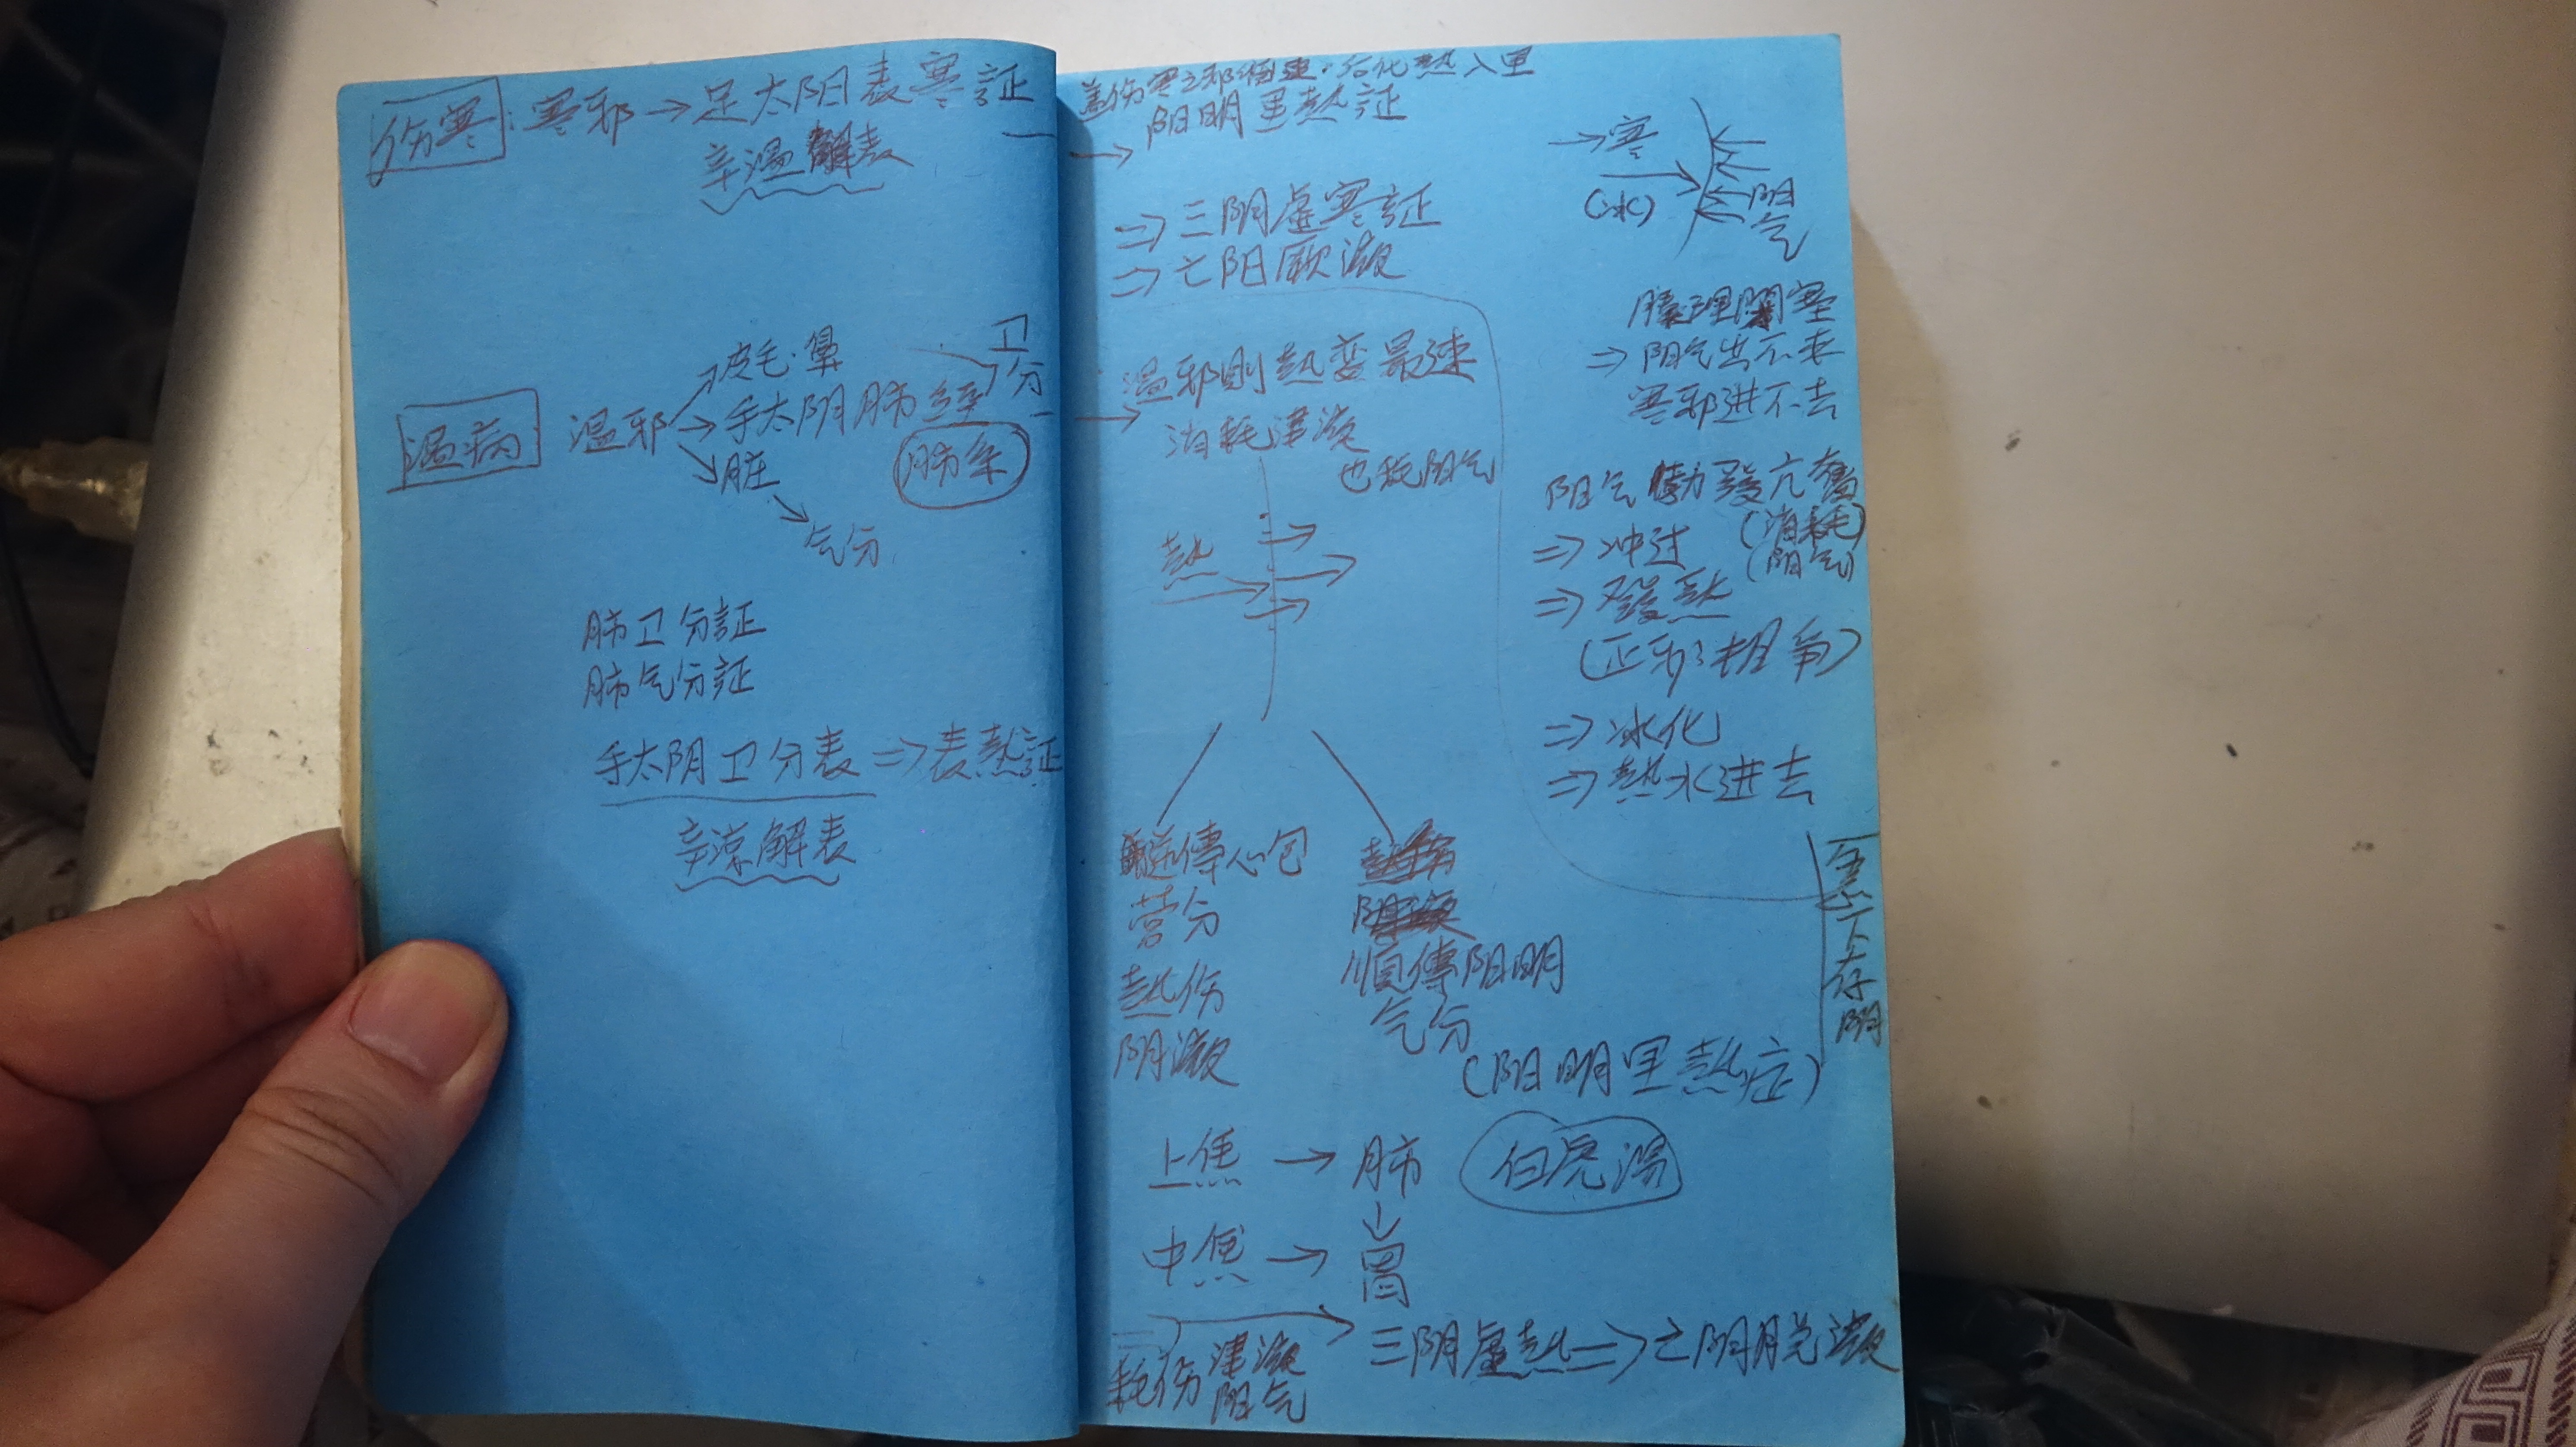 伤寒：寒邪→足太阳表寒証
辛温解表
温病
温邪
皮毛·鼻
→手太阴肺经
脏
气分
卫分
肺系
肺卫分証
肺气分証
手太阴卫分表⇒表热証
辛凉解表
盖伤寒之邪留恋·后化热入里
→阳明里热証
⇒三阴虚寒証
⇒亡阳厥
温邪则热变最速
消耗津液
也耗阳气
热
逆傳心包
营分
热伤
阴液
順傳阳明
气分
(阳明里热症)
上焦→肺
白虎湯
中焦→胃
耗伤津液
阳气
三阴虚热⇒亡阴脱液
→寒
(冰)
阳气
腠理閉塞
⇒阳气出不来
寒邪进不去
阳气勃發亢奮
(消耗)
(阳气)
⇒冲过
⇒發热
(正邪相爭)
⇒冰化
⇒热水进去
急下存阴